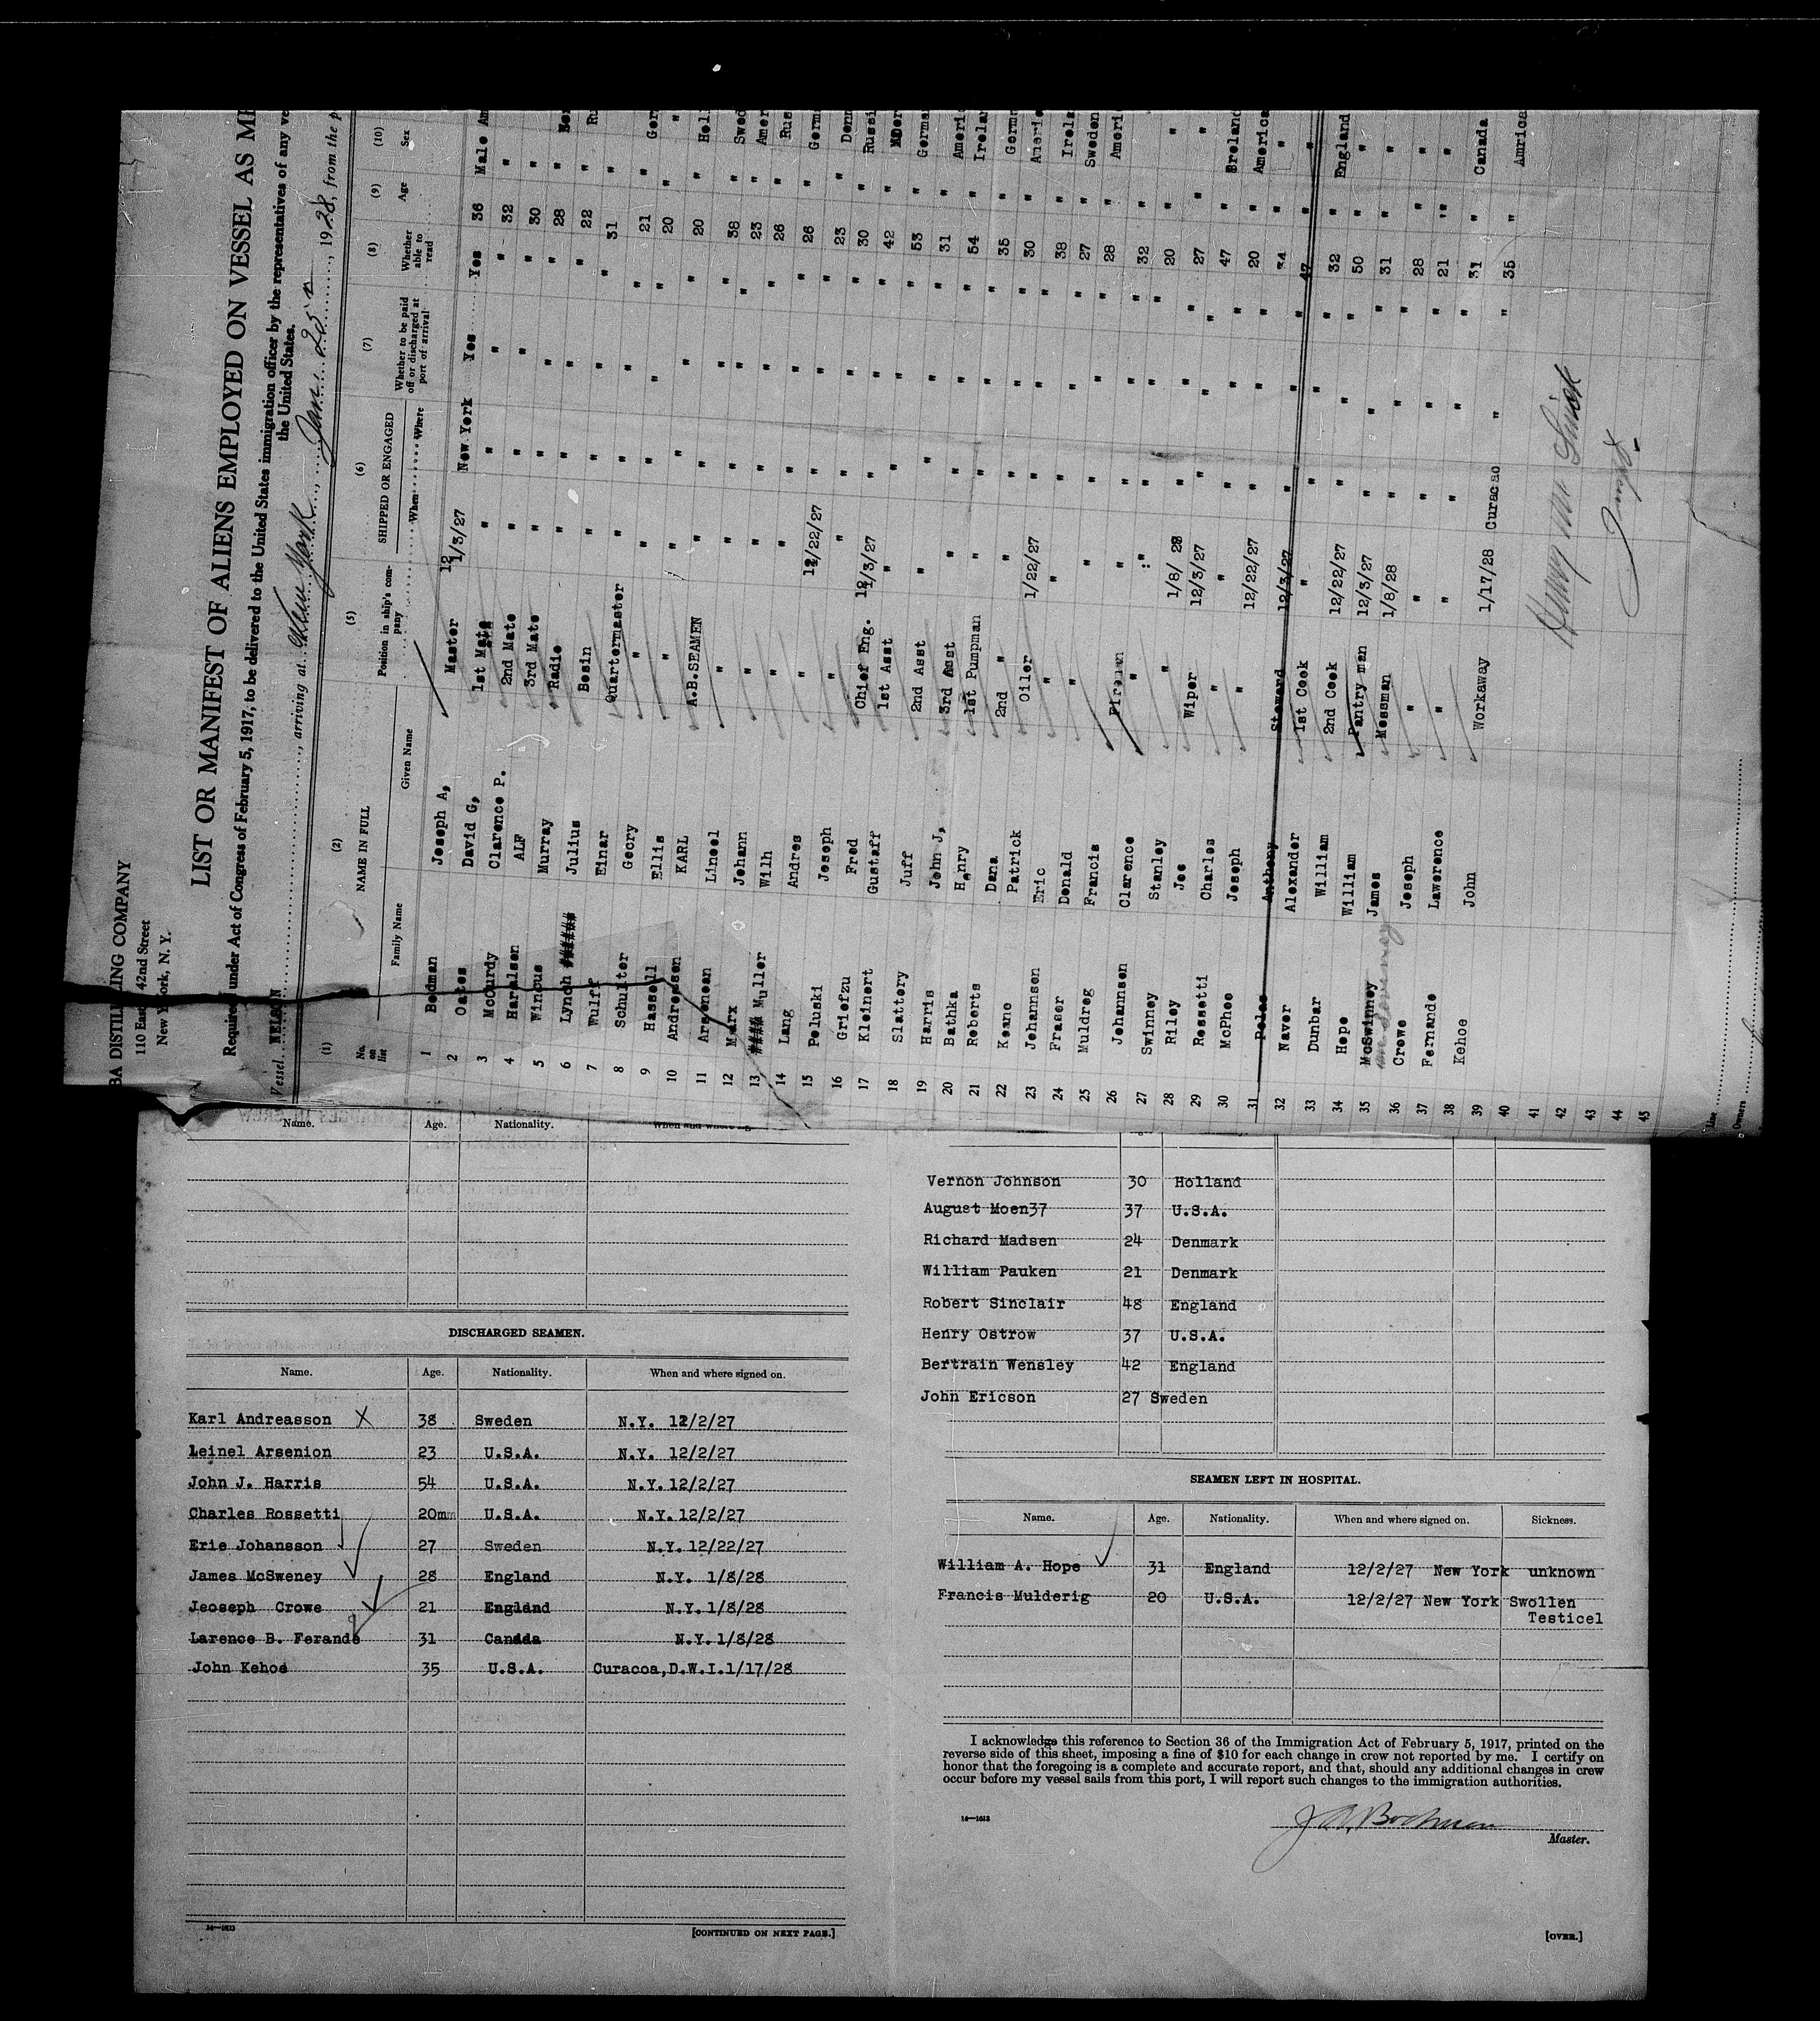 BA DISTILLING COMPANY
110 East 42nd Street
New York, N. Y.
LIST OR MANIFEST OF ALIENS EMPLOYED ON VESSEL AS ME
Required under Act of Congress of February 5, 1917, to be delivered to the United States immigration officer by the representatives of any ve
the United States.
Vessel NELSON, arriving at New York, Jan 25, 1928, from the p
(1) (2) (5) (6) (7) (8) (9) (10)
No. on list NAME IN FULL Family Name Given Name Position in ship's company SHIPPED OR ENGAGED When Where Whether to be paid off or discharged at port of arrival Whether able to read Age Sex
1 Bodman Joseph A, Master 12/3/27 New York Yes Yes 36 Male Am
2 Oates David G, 1st Mate " " " " 32 "
3 McCurdy Clarence P. 2nd Mate " " " " 30 "
4 Haralsen ALF 3rd Mate " " " " 28 " Nor
5 Wincus Murray Radio " " " " 22 " Ru
6 Lynch Julius Bosin " " " " 31 "
7 Wulff Einar Quartermaster " " " " 21 " Ger
8 Schulter Geery " " " " " 20 " "
9 Hassell Ellis " " " " " 20 " Holl
10 Andreasen KARL A.B.SEAMEN " " " " 38 " Swed
11 Arsenean Lineel " " " " " 23 " Amer
12 Marx Johann " " " " " 26 " Rus
13 Muller Wilh " " " " " 26 " Germ
14 Lang Andres " 12/22/27 " " " 23 " Denm
15 Peluski Joseph " " " " " 30 " Russi
16 Griefzu Fred Chief Eng. 12/3/27 " " " 42 "
17 Kleinert Gustaff 1st Asst " " " " 53 " Germa
18 Slattery Juff 2nd Asst " " " " 31 " Ameri
19 Harris John J, 3rd Asst " " " " 54 " Irelan
20 Bathka Henry 1st Pumpman " " " " 35 " Germa
21 Roberts Dana 2nd " " " " " 30 " Americ
22 Keane Patrick Oiler 1/22/27 " " " 38 " Irela
23 Johannsen Eric " " " " " 27 " Sweden
24 Fraser Donald " " " " " 28 " Ameri
25 Muldreg Francis Firemen " " " " 32 "
26 Johannsen Clarence " " " " " 20 " "
27 Swinney Stanley " 1/8/28 " " " 27 " "
28 Riley Joe Wiper 12/3/27 " " " 47 " Ireland
29 Rossetti Charles " " " " " 20 " America
30 McPhee Joseph " 12/22/27 " " " 34 " "
31 Peles Anthony Steward 12/3/27 " " " 47 " "
32 Naver Alexander 1st Cook " " " " 32 " England
33 Dunbar William 2nd Cook 12/22/27 " " " 50 " "
34 Hope William Pantry man 12/3/27 " " " 31 " "
35 McSwinney James Messman 1/8/28 " " " 28 " "
36 Crowe Joseph " " " " " 21 " "
37 Fernande Lawerence " " " " " 31 " Canada
38 Kehoe John Workaway 1/17/28 Curacao " " 35 " Amrica
39
40
41
42
43
44
45
Line
Owners
Name. Age. Nationality.
DISCHARGED SEAMEN.
Name. Age. Nationality. When and where signed on.
Karl Andreasson X 38 Sweden N.Y. 12/2/27
Leinel Arsenion 23 U.S.A. N.Y. 12/2/27
John J. Harris 54 U.S.A. N.Y. 12/2/27
Charles Rossetti 20m U.S.A. N.Y. 12/2/27
Erie Johansson 27 Sweden N.Y. 12/22/27
James McSweney 28 England N.Y. 1/8/28
Jeoseph Crowe 21 England N.Y. 1/8/28
Larence B. Ferande 31 Canada N.Y. 1/8/28
John Kehoe 35 U.S.A. Curacoa,D.W.I.1/17/28
[CONTINUED ON NEXT PAGE.]
Vernon Johnson 30 Holland
August Moen37 37 U.S.A.
Richard Madsen 24 Denmark
William Pauken 21 Denmark
Robert Sinclair 48 England
Henry Ostrow 37 U.S.A.
Bertrain Wensley 42 England
John Ericson 27 Sweden
SEAMEN LEFT IN HOSPITAL.
Name. Age. Nationality. When and where signed on. Sickness.
William A. Hope 31 England 12/2/27 New York unknown
Francis Mulderig 20 U.S.A. 12/2/27 New York Swollen
Testicel
I acknowledge this reference to Section 36 of the Immigration Act of February 5, 1917, printed on the
reverse side of this sheet, imposing a fine of $10 for each change in crew not reported by me. I certify on
honor that the foregoing is a complete and accurate report, and that, should any additional changes in crew
occur before my vessel sails from this port, I will report such changes to the immigration authorities.
J A Bodman
Master.
[OVER.]